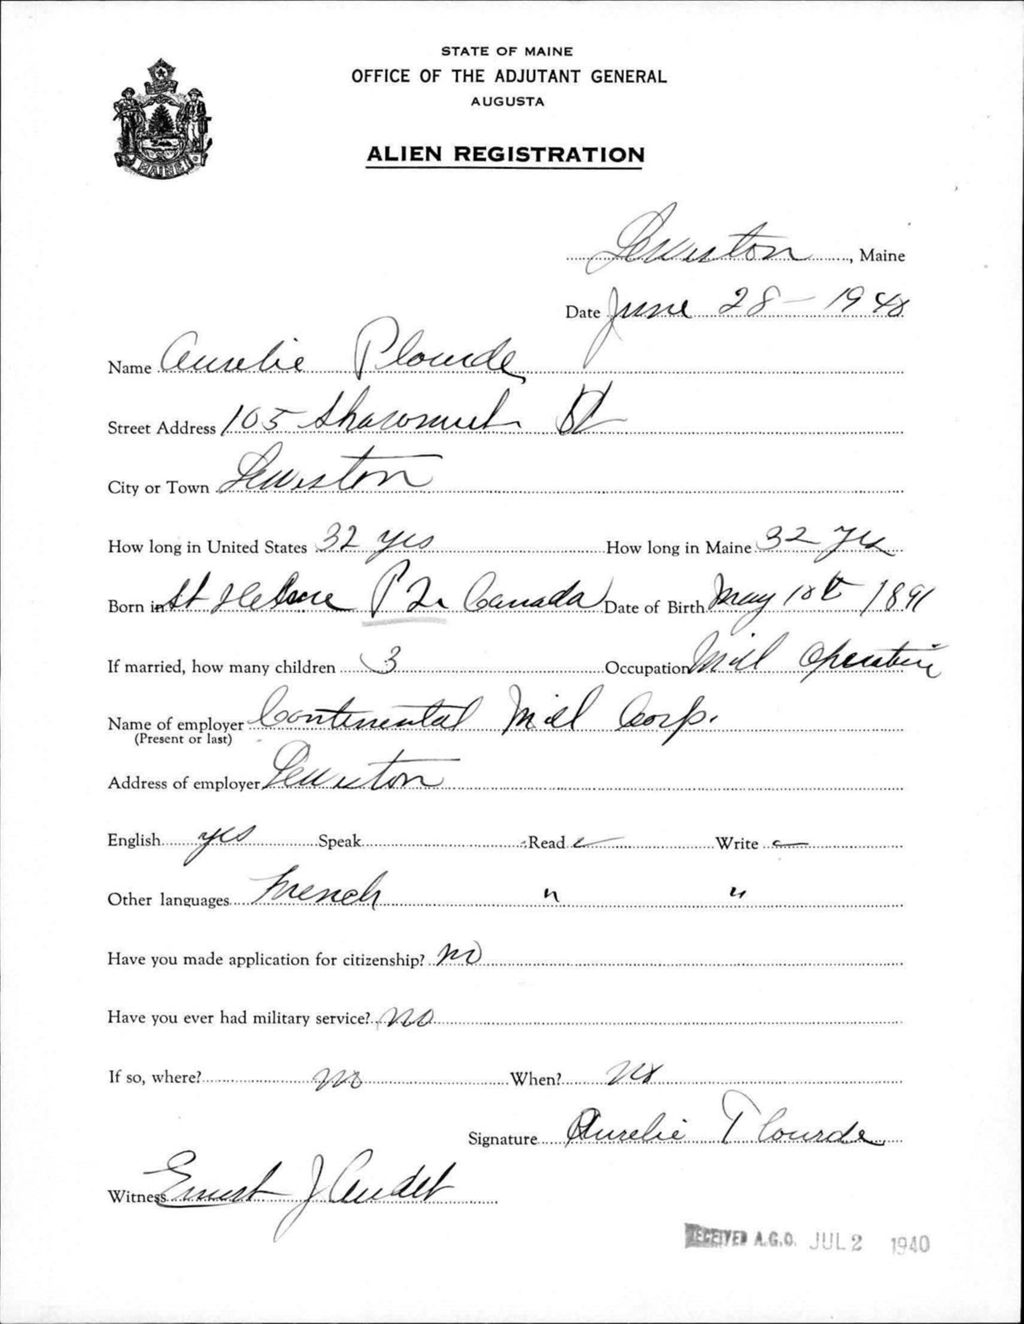 STATE OF MAINE
OFFICE OF THE ADJUTANT GENERAL
AUGUSTA
ALIEN REGISTRATION
MAINE
Lewiston, Maine
Date June 28 - 1940
Name Aurelie Plourde
Street Address 105 Shawmut St
City or Town Lewiston
How long in United States 32 yrs How long in Maine 32 yrs
Born in St Helene P Q Canada Date of Birth May 18t 1891
If married, how many children 3 Occupation Mill Operative
Name of employer Continental Mill Corp.
(Present or last)
Address of employer Lewiston
English yes Speak Read Write
Other languages French " "
Have you made application for citizenship? no
Have you ever had military service? no
If so, where? no When? no
Signature Aurelie Plourde
Witness Ernest J Audet
RECEIVED A.G.O. JUL 2 1940